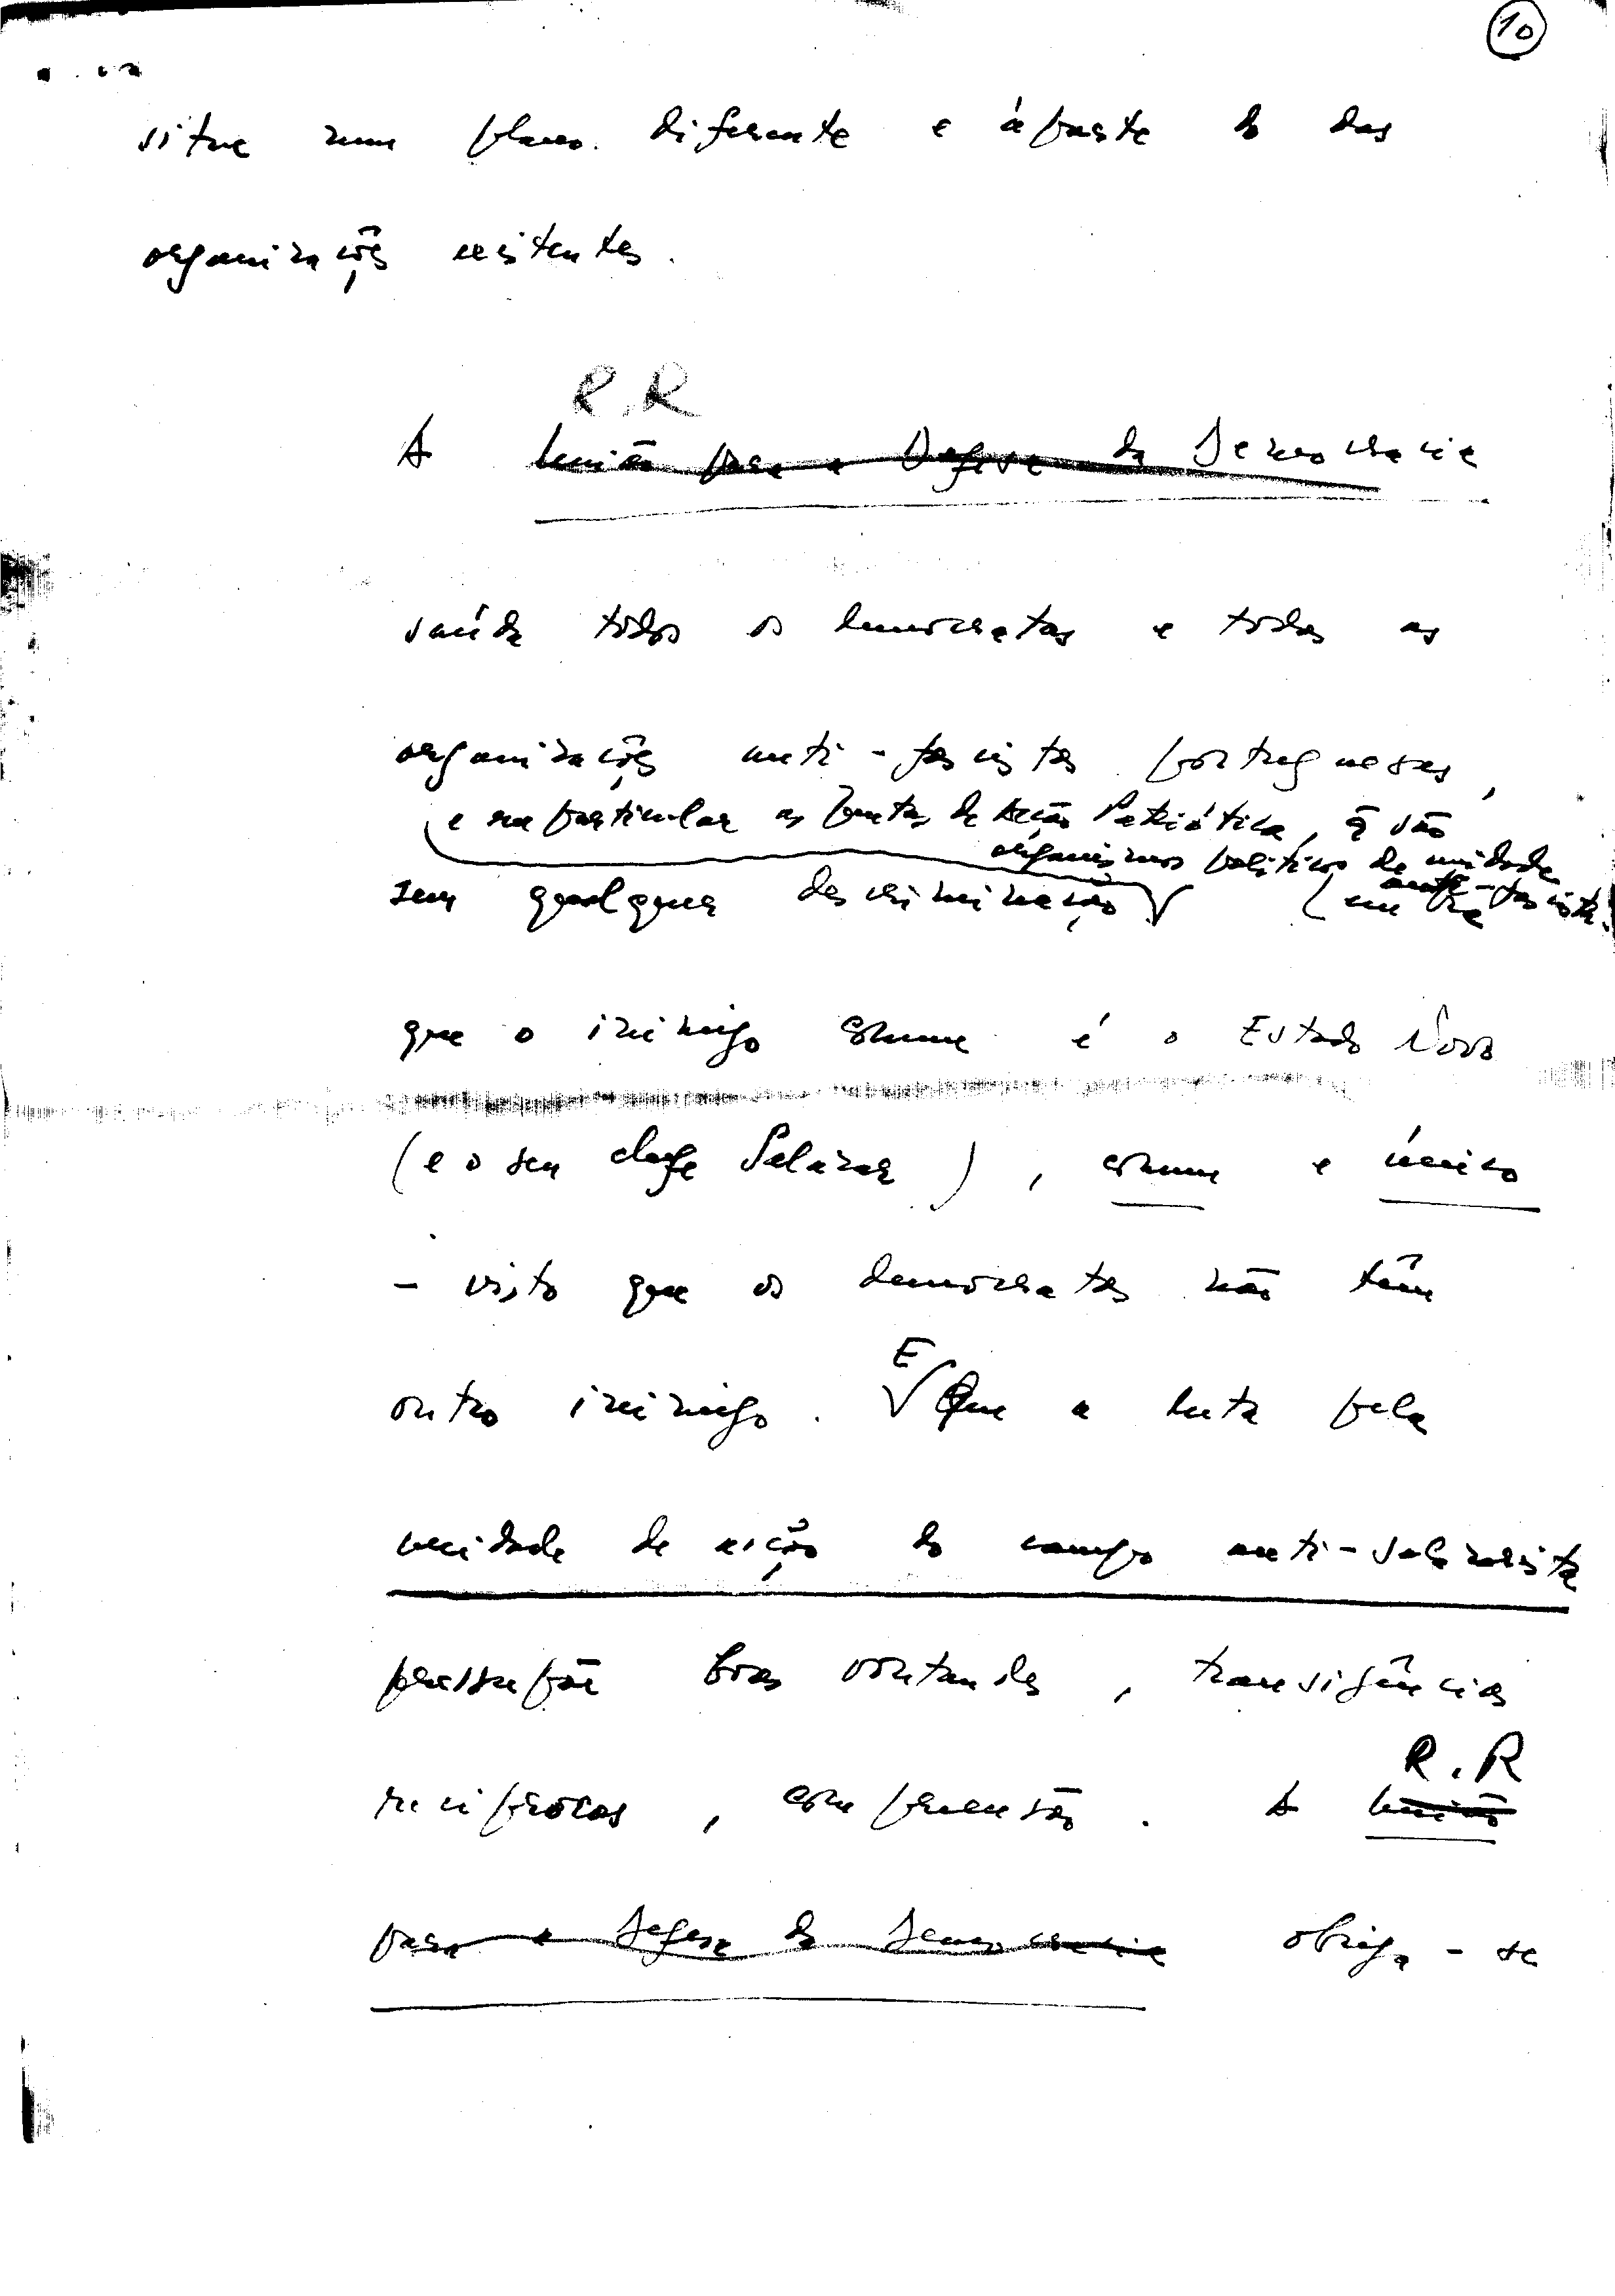 10
situe num plano diferente e àparte do das
organizações existentes.
R.R
A União para a Defesa da Democracia
saúda todos os democratas e todas as
organizações anti-fascistas portuguesas,
e em particular as Juntas de Acção Patriótica, q̃ são
organismos políticos de unidade
anti-fascista.
sem qualquer descriminação
que o inimigo comum é o Estado Novo
(e o seu chefe Salazar), comum e único
- visto que os democratas não têm
outro inimigo. E Que a luta pela
unidade de acção do campo anti-salazarista
pressupõe boas vontades, transigências
recíprocas, compreensão. A União
R.R
para a Defesa da Democracia obriga-se